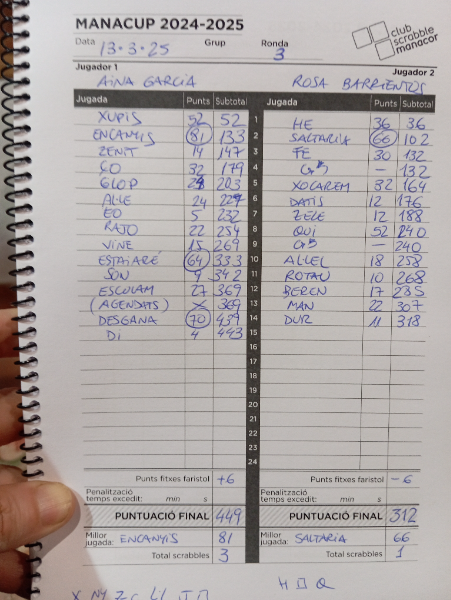 MANACUP 2024-2025
club scrabble manacor
Data 13·3·25 Grup Ronda 3
Jugador 1 Jugador 2
AINA GARCIA ROSA BARRIENTOS
Jugada Punts Subtotal Jugada Punts Subtotal
XUPIS 52 52 1 HE 36 36
ENCANYIS 81 133 2 SALTARIA 66 102
ZENIT 14 147 3 FE 30 132
ÇO 32 179 4 — 132
GLOP 24 203 5 XOCAREM 32 164
24 227 6 DATIS 12 176
EO 5 232 7 ZELE 12 188
RAJO 22 254 8 QUI 52 240
VINE 15 269 9 — 240
ESTAIARÉ 64 333 10 AL·LEL 18 258
SON 9 342 11 ROTAU 10 268
ESCOLAM 27 369 12 17 285
(AGENDATS) X 369 13 MAN 22 307
DESGANA 70 439 14 DUR 11 318
DI 4 443 15
16
17
18
19
20
21
22
23
24
Punts fitxes faristol +6 Punts fitxes faristol -6
Penalització temps excedit: min s Penalització temps excedit: min s
PUNTUACIÓ FINAL 449 PUNTUACIÓ FINAL 312
Millor jugada: ENCANYIS 81 Millor jugada: SALTARIA 66
Total scrabbles 3 Total scrabbles 1